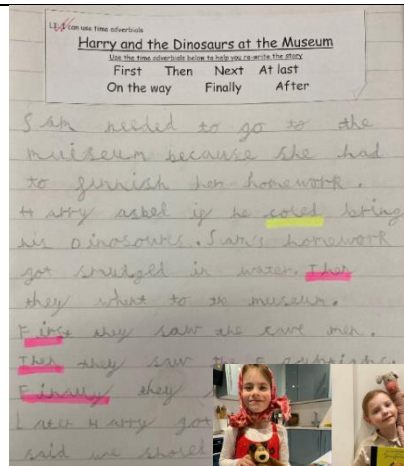 L.I. I can use time adverbials
Harry and the Dinosaurs at the Museum
Use the time adverbials below to help you re-write the story
First Then Next At last
On the way Finally After
Sam needed to go to the
muiseum because she had
to finnish her homework.
Harry asked if he coled bring
his Dinosours. Sam's homework
got in water. Then
they whent to the museum.
First they saw the cave men.
Then they saw the
Finally they
Later Harry got
said we